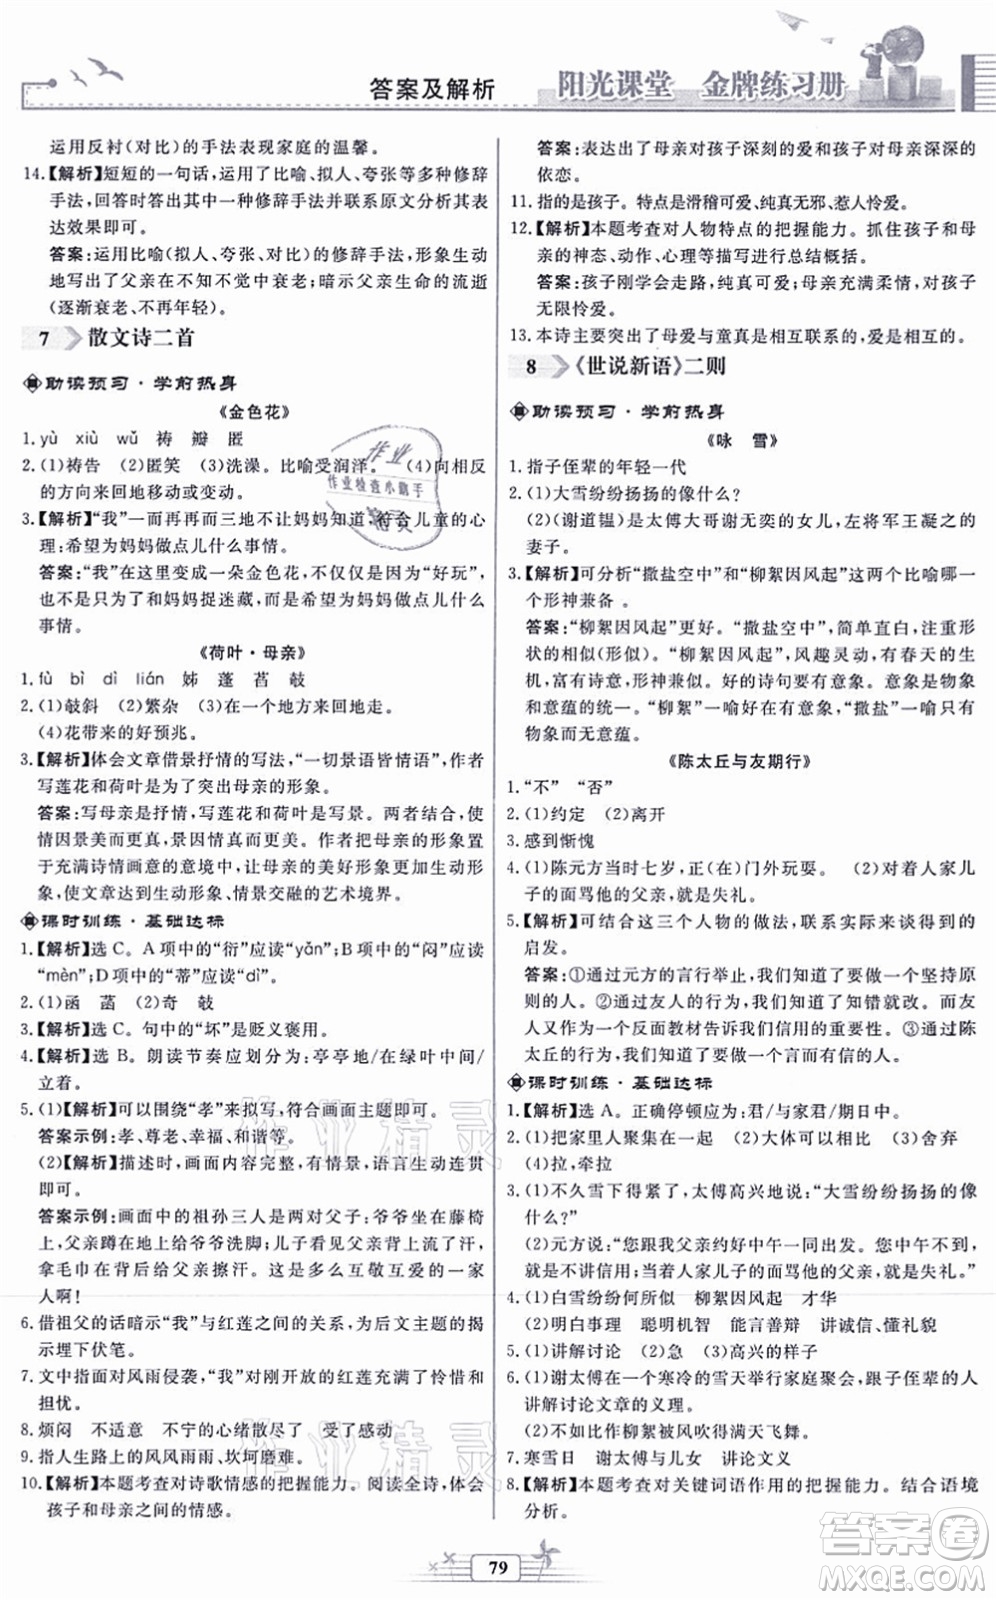 答案及解析
阳光课堂 金牌练习册
运用反衬(对比)的手法表现家庭的温馨。
14.【解析】短短的一句话,运用了比喻、拟人、夸张等多种修辞
手法,回答时答出其中一种修辞手法并联系原文分析其表
达效果即可。
答案:运用比喻(拟人、夸张、对比)的修辞手法,形象生动
地写出了父亲在不知不觉中衰老;暗示父亲生命的流逝
(逐渐衰老、不再年轻)。
7 散文诗二首
助读预习·学前热身
《金色花》
1.yù xiù wǔ 祷 瓣 匿
2.(1)祷告 (2)匿笑 (3)洗澡。比喻受润泽。 (4)向相反
的方向来回地移动或变化。
3.【解析】“我”一而再再而三地不让妈妈知道,符合儿童的心
理:希望为妈妈做点儿什么事情。
答案:“我”在这里变成一朵金色花,不仅仅是因为“好玩”,
也不只是为了和妈妈捉迷藏,而是想为妈妈做点儿什么
事情。
《荷叶·母亲》
1.fù bì dì lián 姊 蓬 菡 攲
2.(1)攲斜 (2)繁杂 (3)在一个地方来回地走。
(4)花带来的好预兆。
3.【解析】体会文章借景抒情的写法,“一切景语皆情语”,作者
写莲花和荷叶是为了突出母亲的形象。
答案:写母亲是抒情,写莲花和荷叶是写景。两者结合,使
情因景美而更真,景因情真而更美。作者把母亲的形象置
于充满诗情画意的意境中,让母亲的美好形象更加丰富感
人,使文章达到生动形象、情景交融的艺术境界。
课时训练·基础达标
1.【解析】选C。A项中的“衍”应读“yǎn”;B项中的“闷”应读
“mèn”;D项中的“蒂”应读“dì”。
2.(1)函 菡 (2)奇 攲
3.【解析】选C。句中的“坏”是贬义褒用。
4.【解析】选B。朗读节奏应划分为:亭亭地/在绿叶中间/
立着。
5.(1)【解析】可以围绕“孝”来拟写,符合画面主题即可。
答案示例:孝、尊老、幸福、和谐等。
(2)【解析】描述时,画面完整,有情景,语言生动连贯
即可。
答案示例:画面中的祖孙三人是两对父子:爷爷坐在藤椅
上,父亲蹲在地上给爷爷洗脚;儿子见父亲脚上流下了汗,
拿毛巾在背后给父亲擦汗。这是多么互敬互爱的一家
人啊!
6.借祖父的话暗示“我”与红莲之间的关系,为后文主题的揭
示埋下伏笔。
7.文中指面对风雨侵袭,“我”对刚开放的红莲的关切和
担忧。
8.烦闷 不适意 不宁的心绪散尽了 受了感动
9.指人生路上的风风雨雨、坎坷磨难。
10.【解析】本题考查对诗歌情感的把握能力。阅读全诗,体会
孩子和母亲之间的情感。
答案:表达出了母亲对孩子深刻的爱和孩子对母亲深深的
依恋。
11.指的是孩子。特点是滑稽可爱、纯真无邪、惹人怜爱。
12.【解析】本题考查对人物特点的把握能力。抓住孩子和母
亲的神态、动作、心理等描写进行总结概括。
答案:孩子刚学会走路,纯真、可爱;母亲年轻,对孩子
无限怜爱。
13.本诗主要突出了母爱与童真是相互联系的,爱是相互的。
8 《世说新语》二则
助读预习·学前热身
《咏 雪》
1.指子侄辈的年轻一代
2.(1)大雪纷纷扬扬的像什么?
(2)(谢道韫)是太傅大哥谢无奕的女儿,左将军王凝之的
妻子。
3.【解析】可分析“撒盐空中”和“柳絮因风起”这两个比喻哪一
个形神兼备 。
答案:“柳絮因风起”更好。“撒盐空中”,简单直白,注重形
状的相似(形似)。“柳絮因风起”,风趣灵动,有春天的生
机,情景交融,形神兼似。好的诗句要有意象。意象是物象
和意蕴的统一。“柳絮”一喻好在有意象,“撒盐”一喻好像
没有意蕴。
《陈太丘与友期行》
1.“不” “否”
2.(1)约定 (2)离开
3.感到惭愧
4.(1)陈元方当时七岁,正(在)门外玩耍。 (2)对着人家儿
子的面骂他的父亲,就是失礼。
5.【解析】可结合这三个人物的做法,联系实际来谈谈自己的
启发。
答案:①通过元方的言行举止,我们知道了要做一个坚持原
则的人。②通过友人的行为,我们知道了知错就改。而友
人又作为一个反面教材告诉我们信用的重要性。③通过陈
太丘的行为,我们知道了要做一个言而有信的人。
课时训练·基础达标
1.【解析】选A。正确停顿应为:君/与家君/期日中。
2.(1)把家里人聚集在一起 (2)大体可以相比 (3)舍弃
(4)拉,牵拉
3.(1)不久雪下得紧了,太傅高兴地说:“大雪纷纷扬扬的像
什么?”
(2)元方说:“您跟我父亲约好中午一同走。到中午还没到,
就是不讲信用;对着人家儿子的面骂他的父亲,就是失礼。”
4.(1)白雪纷纷何所似 柳絮因风起 才华
(2)明白事理 聪明机智 能言善辩 讲诚信、懂礼貌
5.(1)讲解讨论 (2)急 (3)高兴的样子
6.(1)谢太傅在一个寒冷的雪天举行家庭聚会,跟子侄辈的人
讲解讨论文章的义理。
(2)不如比作柳絮被风吹得满天飞舞。
7.寒雪日 谢太傅与儿女 讲论文义
8.【解析】本题考查对关键词语作用的把握能力。结合语境
分析。
79
作业
作业检查小帮手
作业精灵
作业精灵
答案圈
MXQE.COM